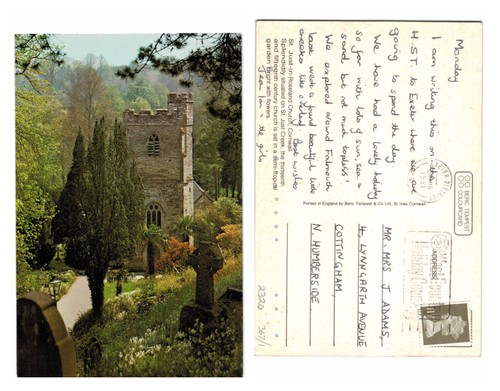 Monday
I am writing this on
H.S.T. to Exeter where we are
going to spend the day
We have had a lovely holiday
so far with lots of sun, sea &
sand but not much topless!
We explored around Falmouth
last week & found beautiful little
creeks like
Best wishes
& the girls
St. Just-in-Roseland Church, Cornwall
Splendidly situated on St. Just Creek, the thirteenth
and fifteenth century church is set in a semi-tropical
garden bright with flowers.
Printed in England by Beric Tempest & Co Ltd., St. Ives, Cornwall
BERIC
TEMPEST
COLOURCARD
ADDRESS
MR. MRS J ADAMS,
LYNNGARTH AVENUE
COTTINGHAM,
N. HUMBERSIDE
2320 367/1